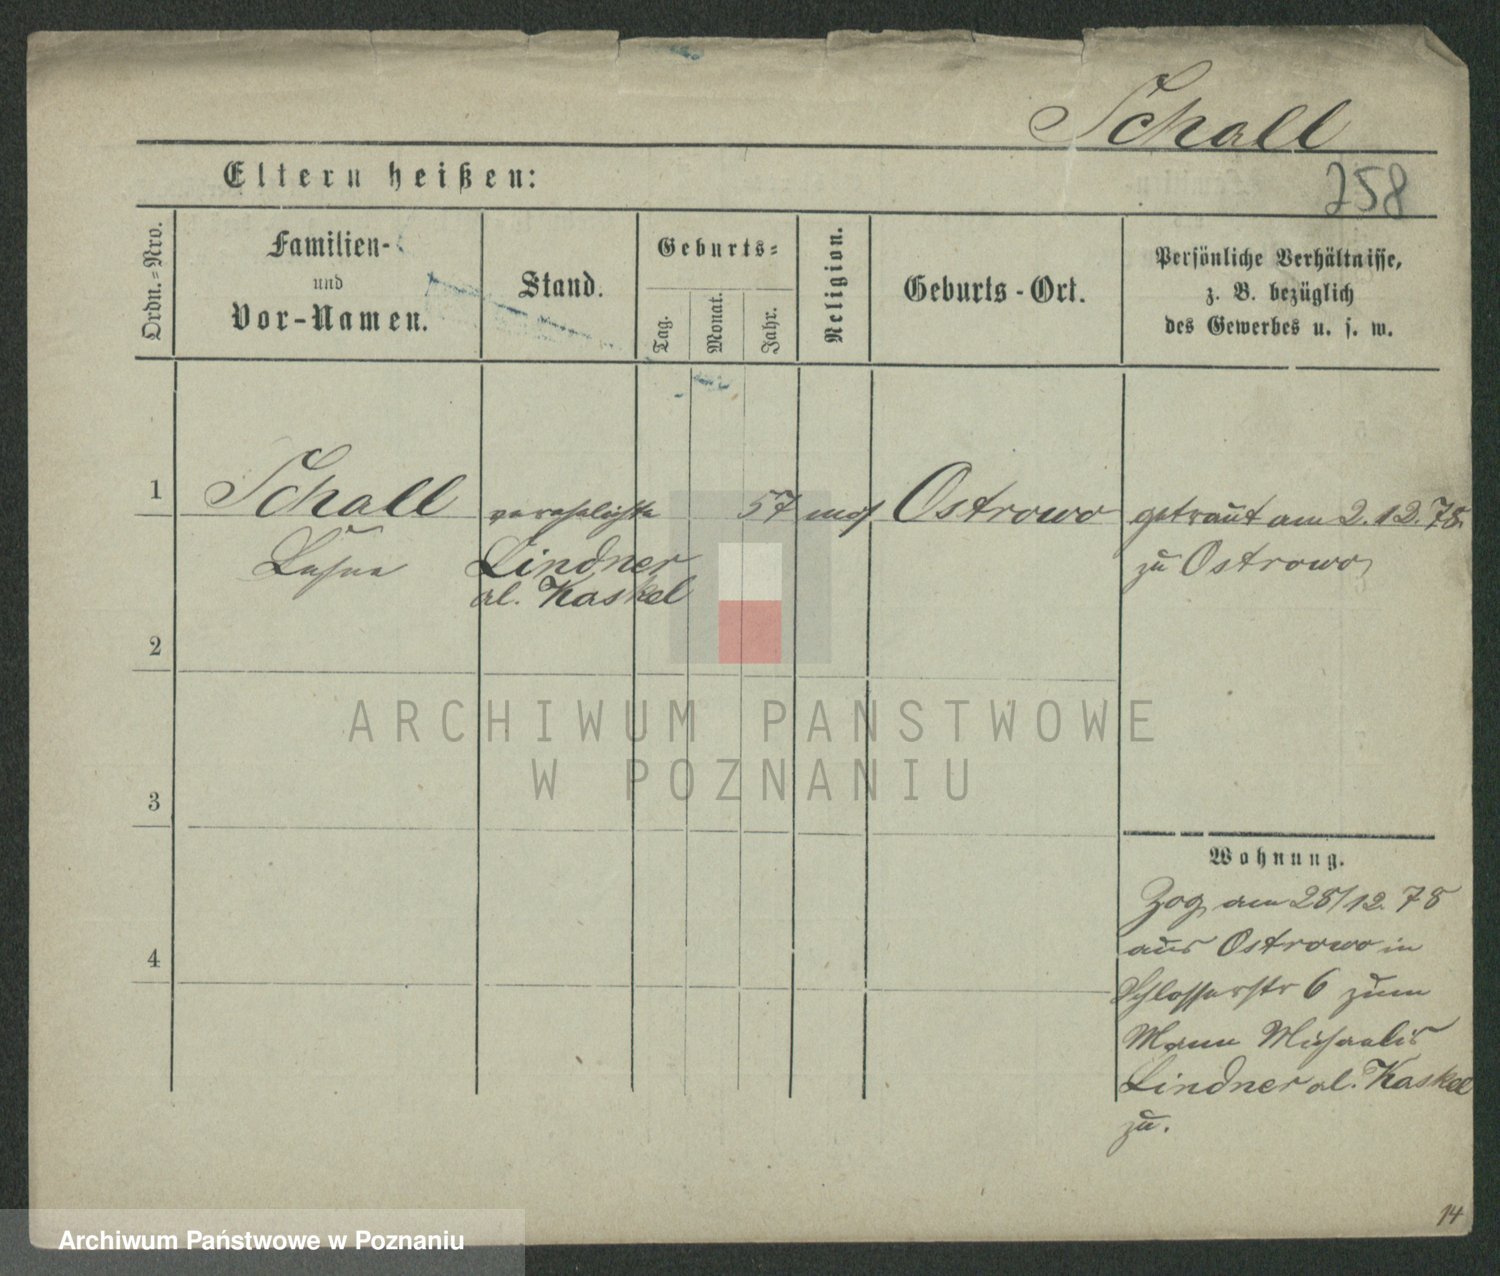 Schall
258
Eltern heißen:
Ordn.=Nro.
Familien-
und
Vor-Namen.
Stand.
Geburts=
Tag.
Monat.
Jahr.
Religion.
Geburts-Ort.
Persönliche Verhältnisse,
z. B. bezüglich
des Gewerbes u. s. w.
1
Schall verehelichte 57 mos Ostrowo getraut am 2.12.78.
Lindner zu Ostrowo
al. Kaskel
2
3
4
Wohnung.
Zog am 28/12. 78
aus Ostrowo in
Schlosserstr 6 zum
Mann Michaelis
Lindner al. Kaskel
zu.
14
ARCHIWUM PAŃSTWOWE
W POZNANIU
Archiwum Państwowe w Poznaniu